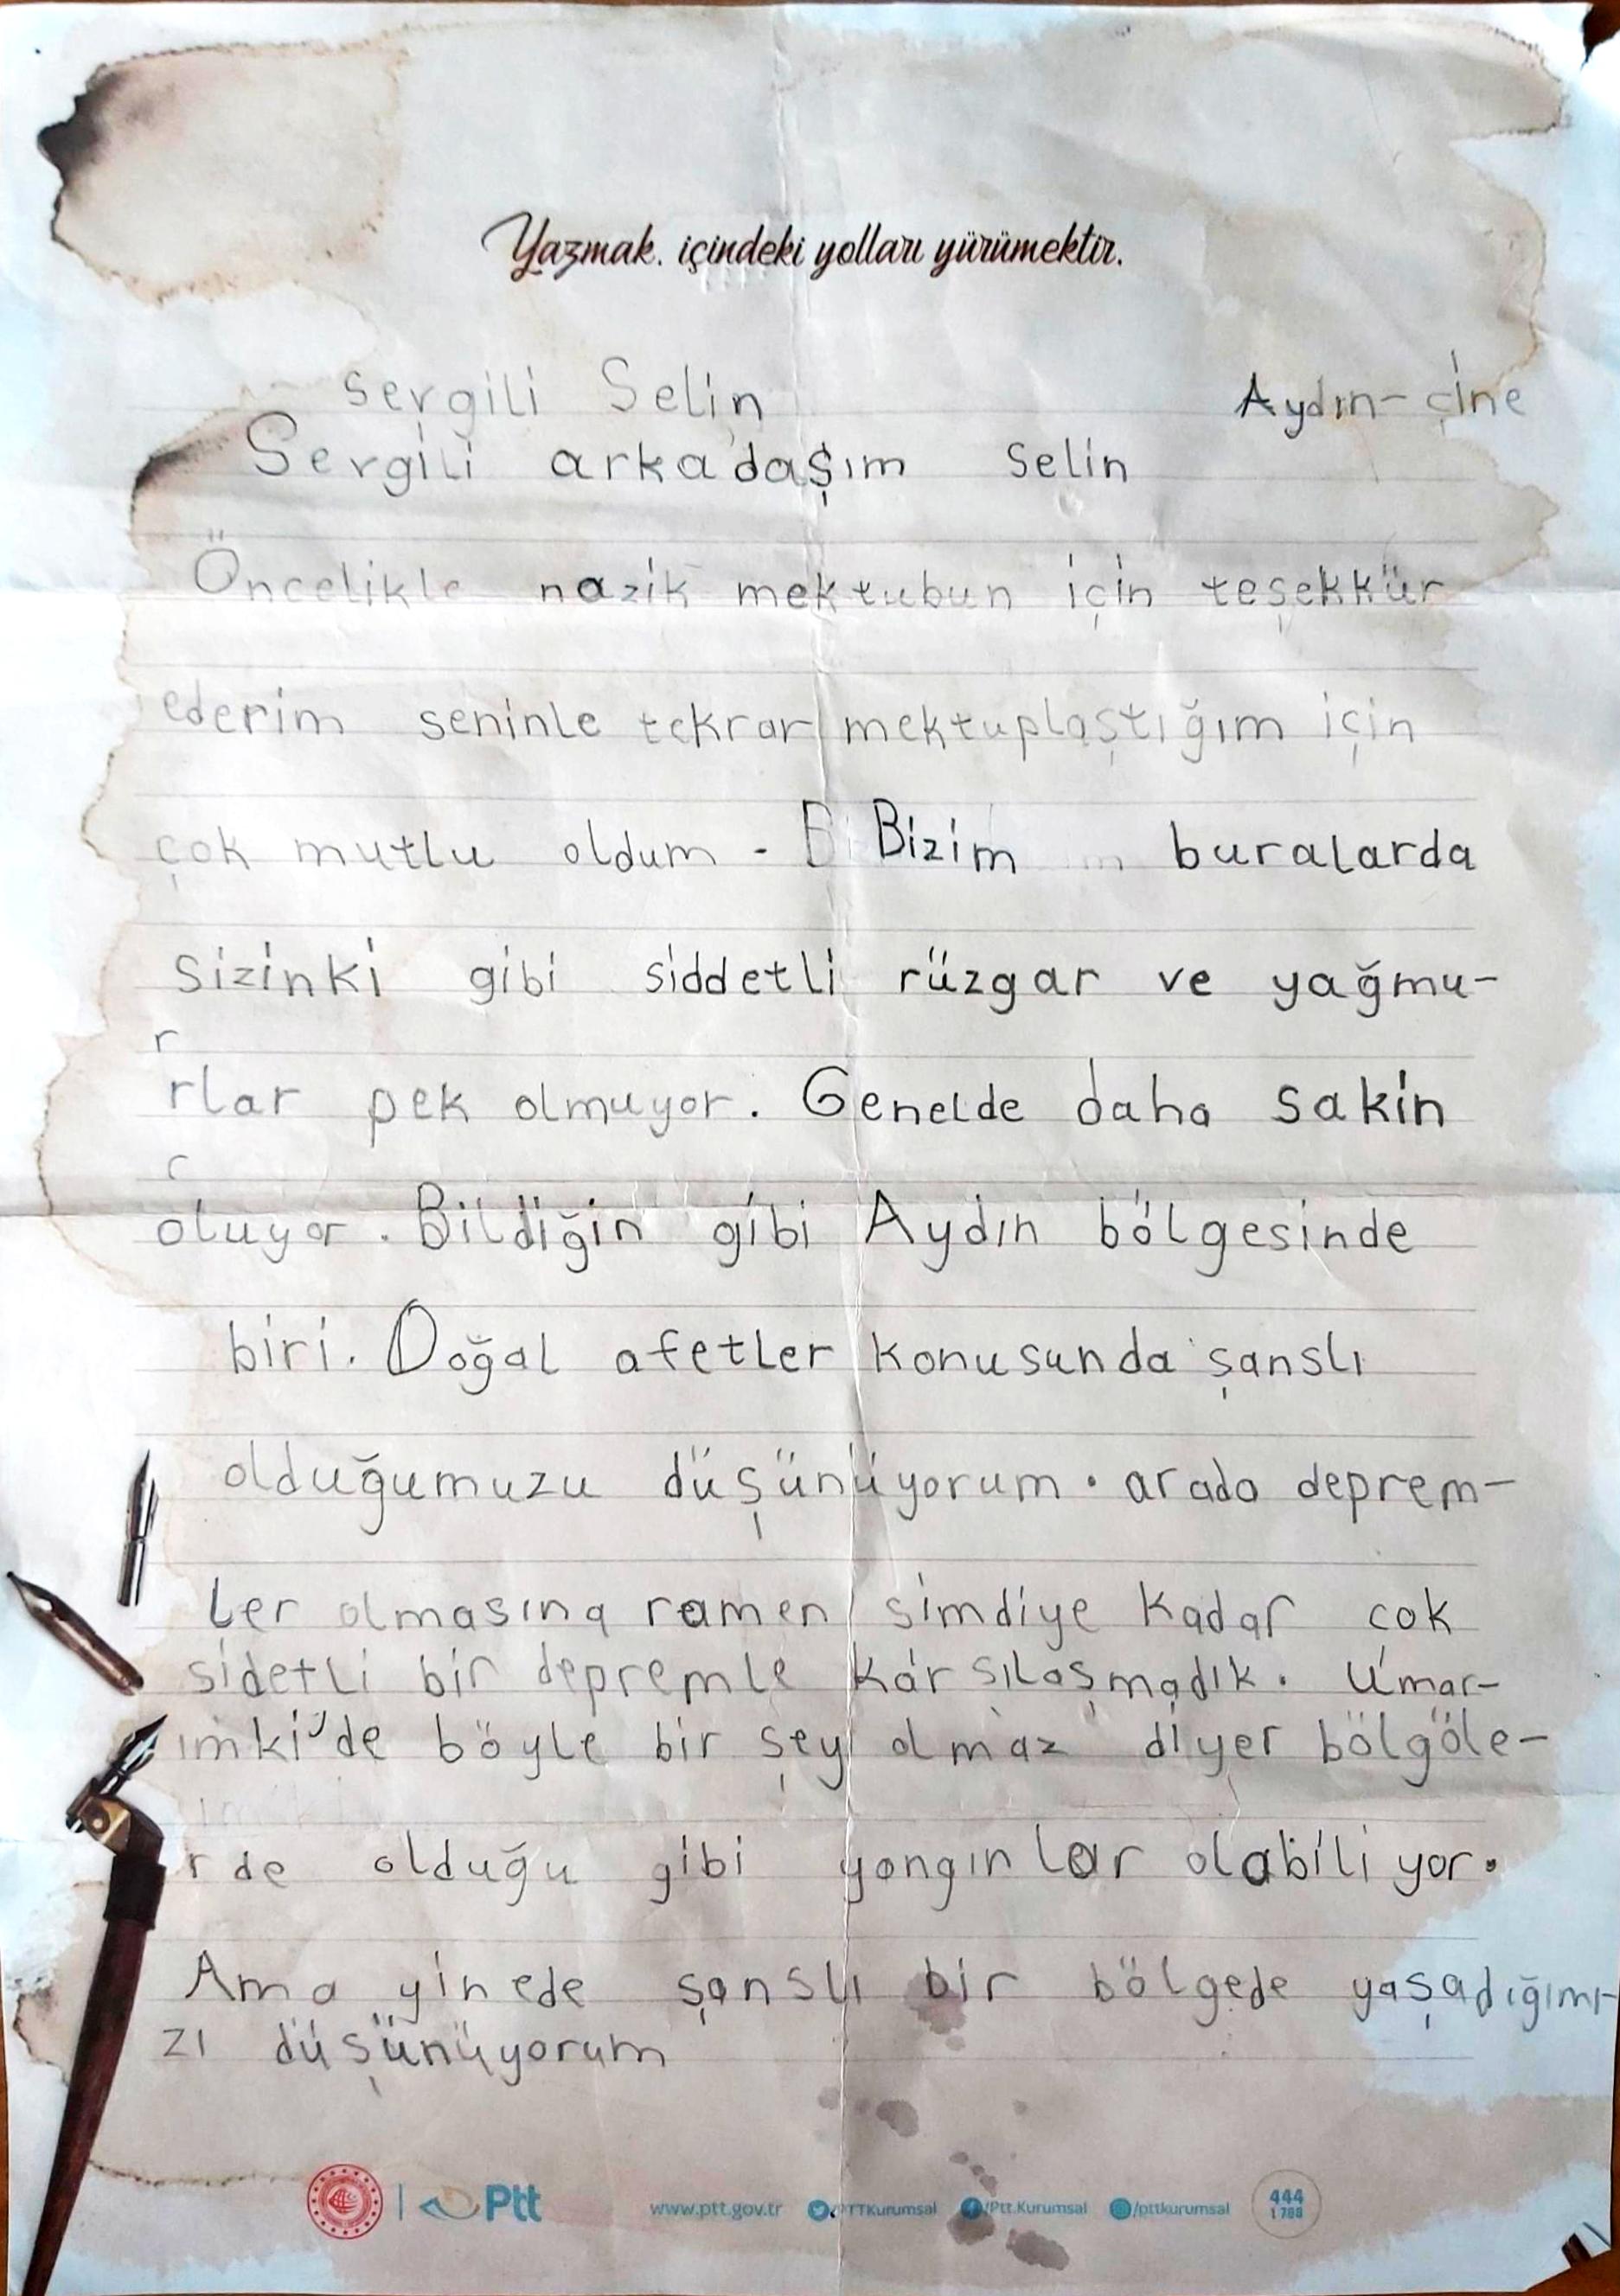 Yazmak. içindeki yolları yürümektir.
sevgili Selin Aydın-çine
Sevgili arkadaşım Selin
Öncelikle nazik mektubun için teşekkür
ederim seninle tekrar mektuplaştığım için
çok mutlu oldum. Bi Bizim m buralarda
sizinki gibi siddetli rüzgar ve yağmu-
r
rlar pek olmuyor. Genelde daha sakin
oluyor. Bildiğin gibi Aydın bölgesinde
biri. Doğal afetler konusunda şanslı
olduğumuzu düşünüyorum. arada deprem-
ler olmasına ramen simdiye kadar cok
sidetli bir depremle karsılaşmadık. Umar-
ımki'de böyle bir şey olmaz diyer bölgöle-
rde olduğu gibi yangınlar olabiliyor.
Ama yinede şanslı bir bölgede yaşadığımı-
zı düşünüyorum
Ptt www.ptt.gov.tr /PTTKurumsal /Ptt.Kurumsal /pttkurumsal 444
1 788